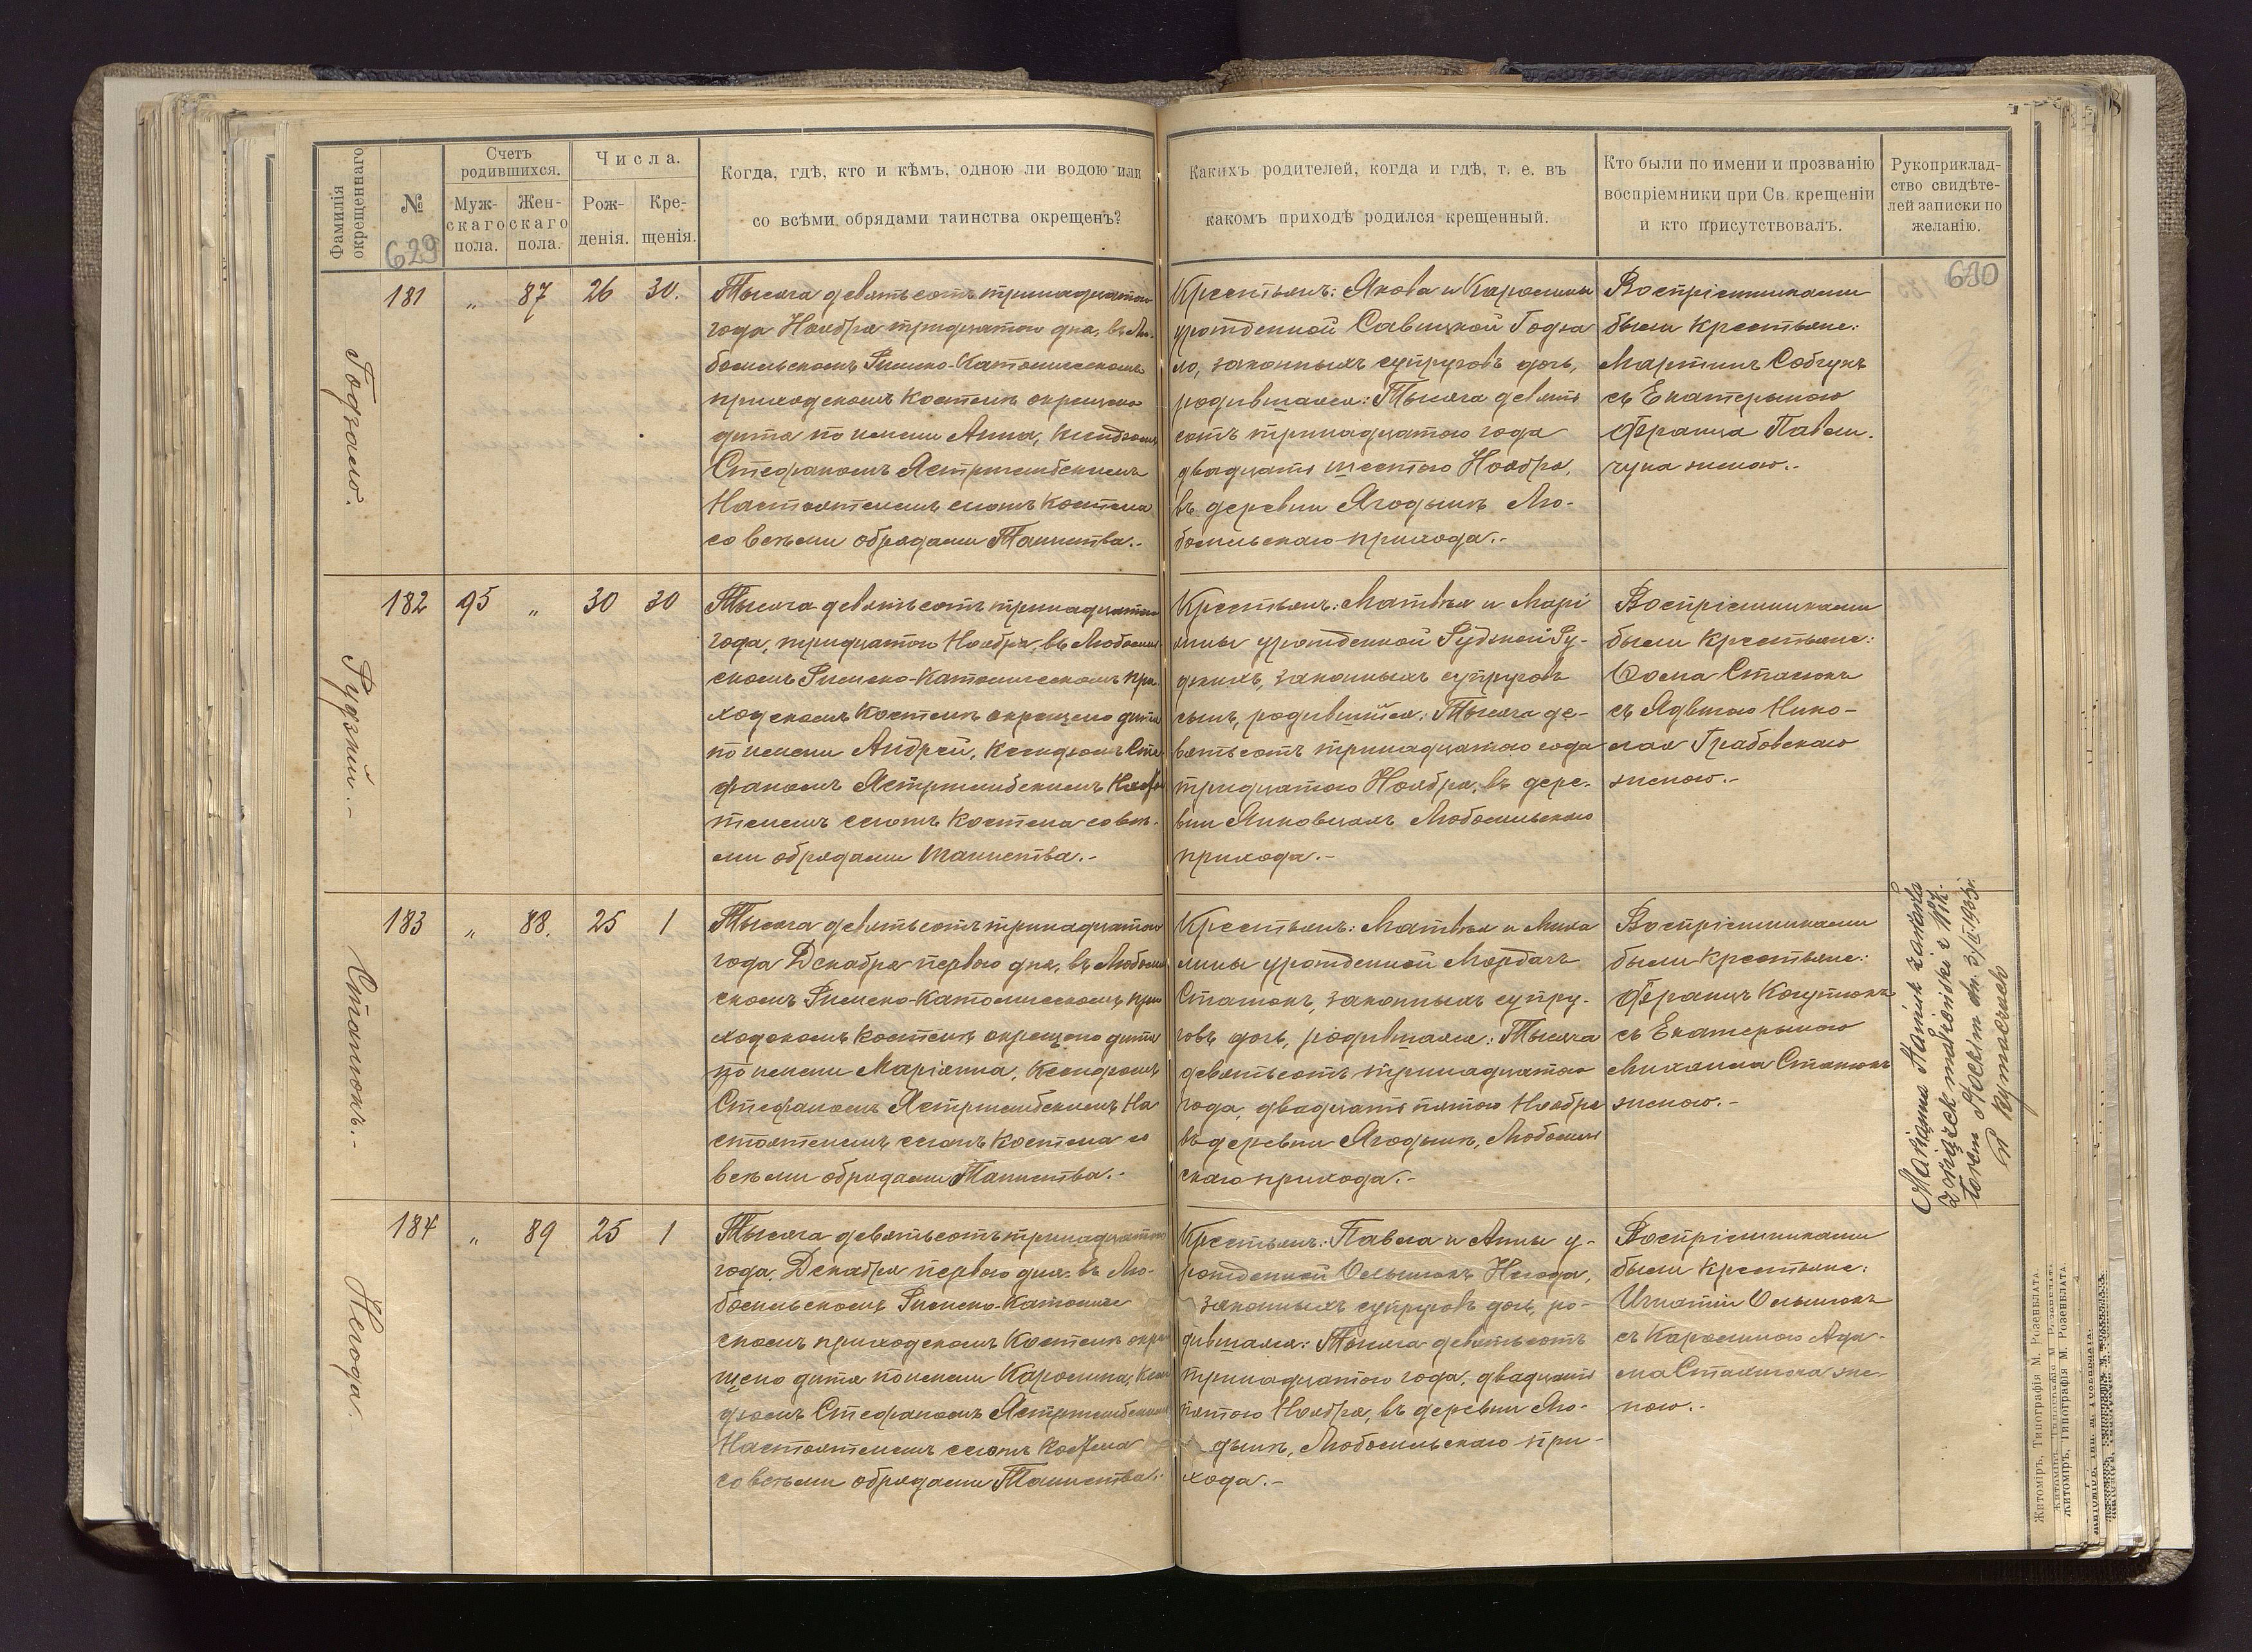 Фамилія окрещеннаго
№
629
Счетъ родившихся.
Мужскаго пола.
Женскаго пола.
Числа.
Рожденія.
Крещенія.
Когда, гдѣ, кто и кѣмъ, одною ли водою или
со всѣми обрядами таинства окрещенъ?
Какихъ родителей, когда и гдѣ, т. е. въ
какомъ приходѣ родился крещенный.
Кто были по имени и прозванію
воспріемники при Св. крещеніи
и кто присутствовалъ.
Рукоприклад-
ство свидѣте-
лей записки по
желанію.
630
Годзало.
181 „ 87 26 30.
Тысяча девятьсотъ тринадцатого
года Ноября тридцатого дня, въ Лю-
бомльскомъ Римско-Католическомъ
приходскомъ Костелѣ окрещено
дитя по имени Анна, Ксендзомъ
Стефаномъ Ястржембскимъ
Настоятелемъ сего Костела
со всѣми обрядами Таинства.-
Крестьянъ: Якова и Каролины
урожденной Савицкой Годза
ло, законныхъ супруговъ дочь,
родившаяся: Тысяча девять
сотъ тринадцатого года
двадцать шестого Ноября,
въ деревни Ягодынѣ Лю-
бомльскаго прихода.-
Воспріемниками
были крестьяне:
Мартинъ Собчукъ
съ Екатериною
Франца Павлю-
чука женою.-
Рудзкій.-
182 95 „ 30 30
Тысяча девятьсотъ тринадцатого
года, тридцатого Ноября, въ Любомль
скомъ Римско-Католическомъ при
ходскомъ Костелѣ окрещено дитя
по имени Андрей, Ксендзомъ Сте
фаномъ Ястржембскимъ Настоя
телемъ сего Костела со всѣ-
ми обрядами таинства.-
Крестьянъ: Матвѣя и Марі
янны урожденной Рудзкой Ру-
дзкихъ, законныхъ супруговъ
сынъ, родившійся: Тысяча де-
вятьсотъ тринадцатого года
тридцатого Ноября, въ дере-
вни Янковцахъ Любомльскаго
прихода.-
Воспріемниками
были крестьяне:
Ѳома Станюкъ
съ Ядвигою Нико-
лая Грабовскаго
женою.-
Станюкъ.-
183 „ 88. 25 1
Тысяча девятьсотъ тринадцатого
года Декабря первого дня, въ Любомль
скомъ Римско-Католическомъ при
ходскомъ Костелѣ окрещено дитя
по имени Маріянна, Ксендзомъ
Стефаномъ Ястржембскимъ На
стоятелемъ сего Костела со
всѣми обрядами Таинства.-
Крестьянъ: Матвѣя и Миха
лины урожденной Мордачъ
Станюкъ, законныхъ супру-
говъ дочь, родившаяся: Тысяча
девятьсотъ тринадцатого
года, двадцать пятого Ноября
въ деревни Ягодынѣ, Любомль
скаго прихода.-
Воспріемниками
были крестьяне:
Францъ Коцтюкъ
съ Екатериною
Михаила Станюкъ
женою.-
Marianna Staniuk zawarła
związek małżeński z Wik-
torem
w Rymaczach
Негода.
184 „ 89 25 1
Тысяча девятьсотъ тринадцатого
года, Декабря первого дня, въ Лю-
бомльскомъ Римско-Католиче
скомъ приходскомъ Костелѣ окре
щено дитя по имени Каролина, Ксен
дзомъ Стефаномъ Ястржембскимъ
Настоятелемъ сего Костела
со всѣми обрядами Таинства.-
Крестьянъ: Павла и Анны у-
рожденной Ольшюкъ Негода,
законныхъ супруговъ дочь, ро-
дившаяся: Тысяча девятьсотъ
тринадцатого года, двадцать
пятого Ноября, въ деревни
Любомльскаго при-
хода.-
Воспріемниками
были крестьяне:
Игнатій Ольшюкъ
съ Каролиною Ада-
ма Станюка же-
ною.-
Житоміръ, Типографія М. Розенблата.
Житоміръ, Типографія М. Розенблата.